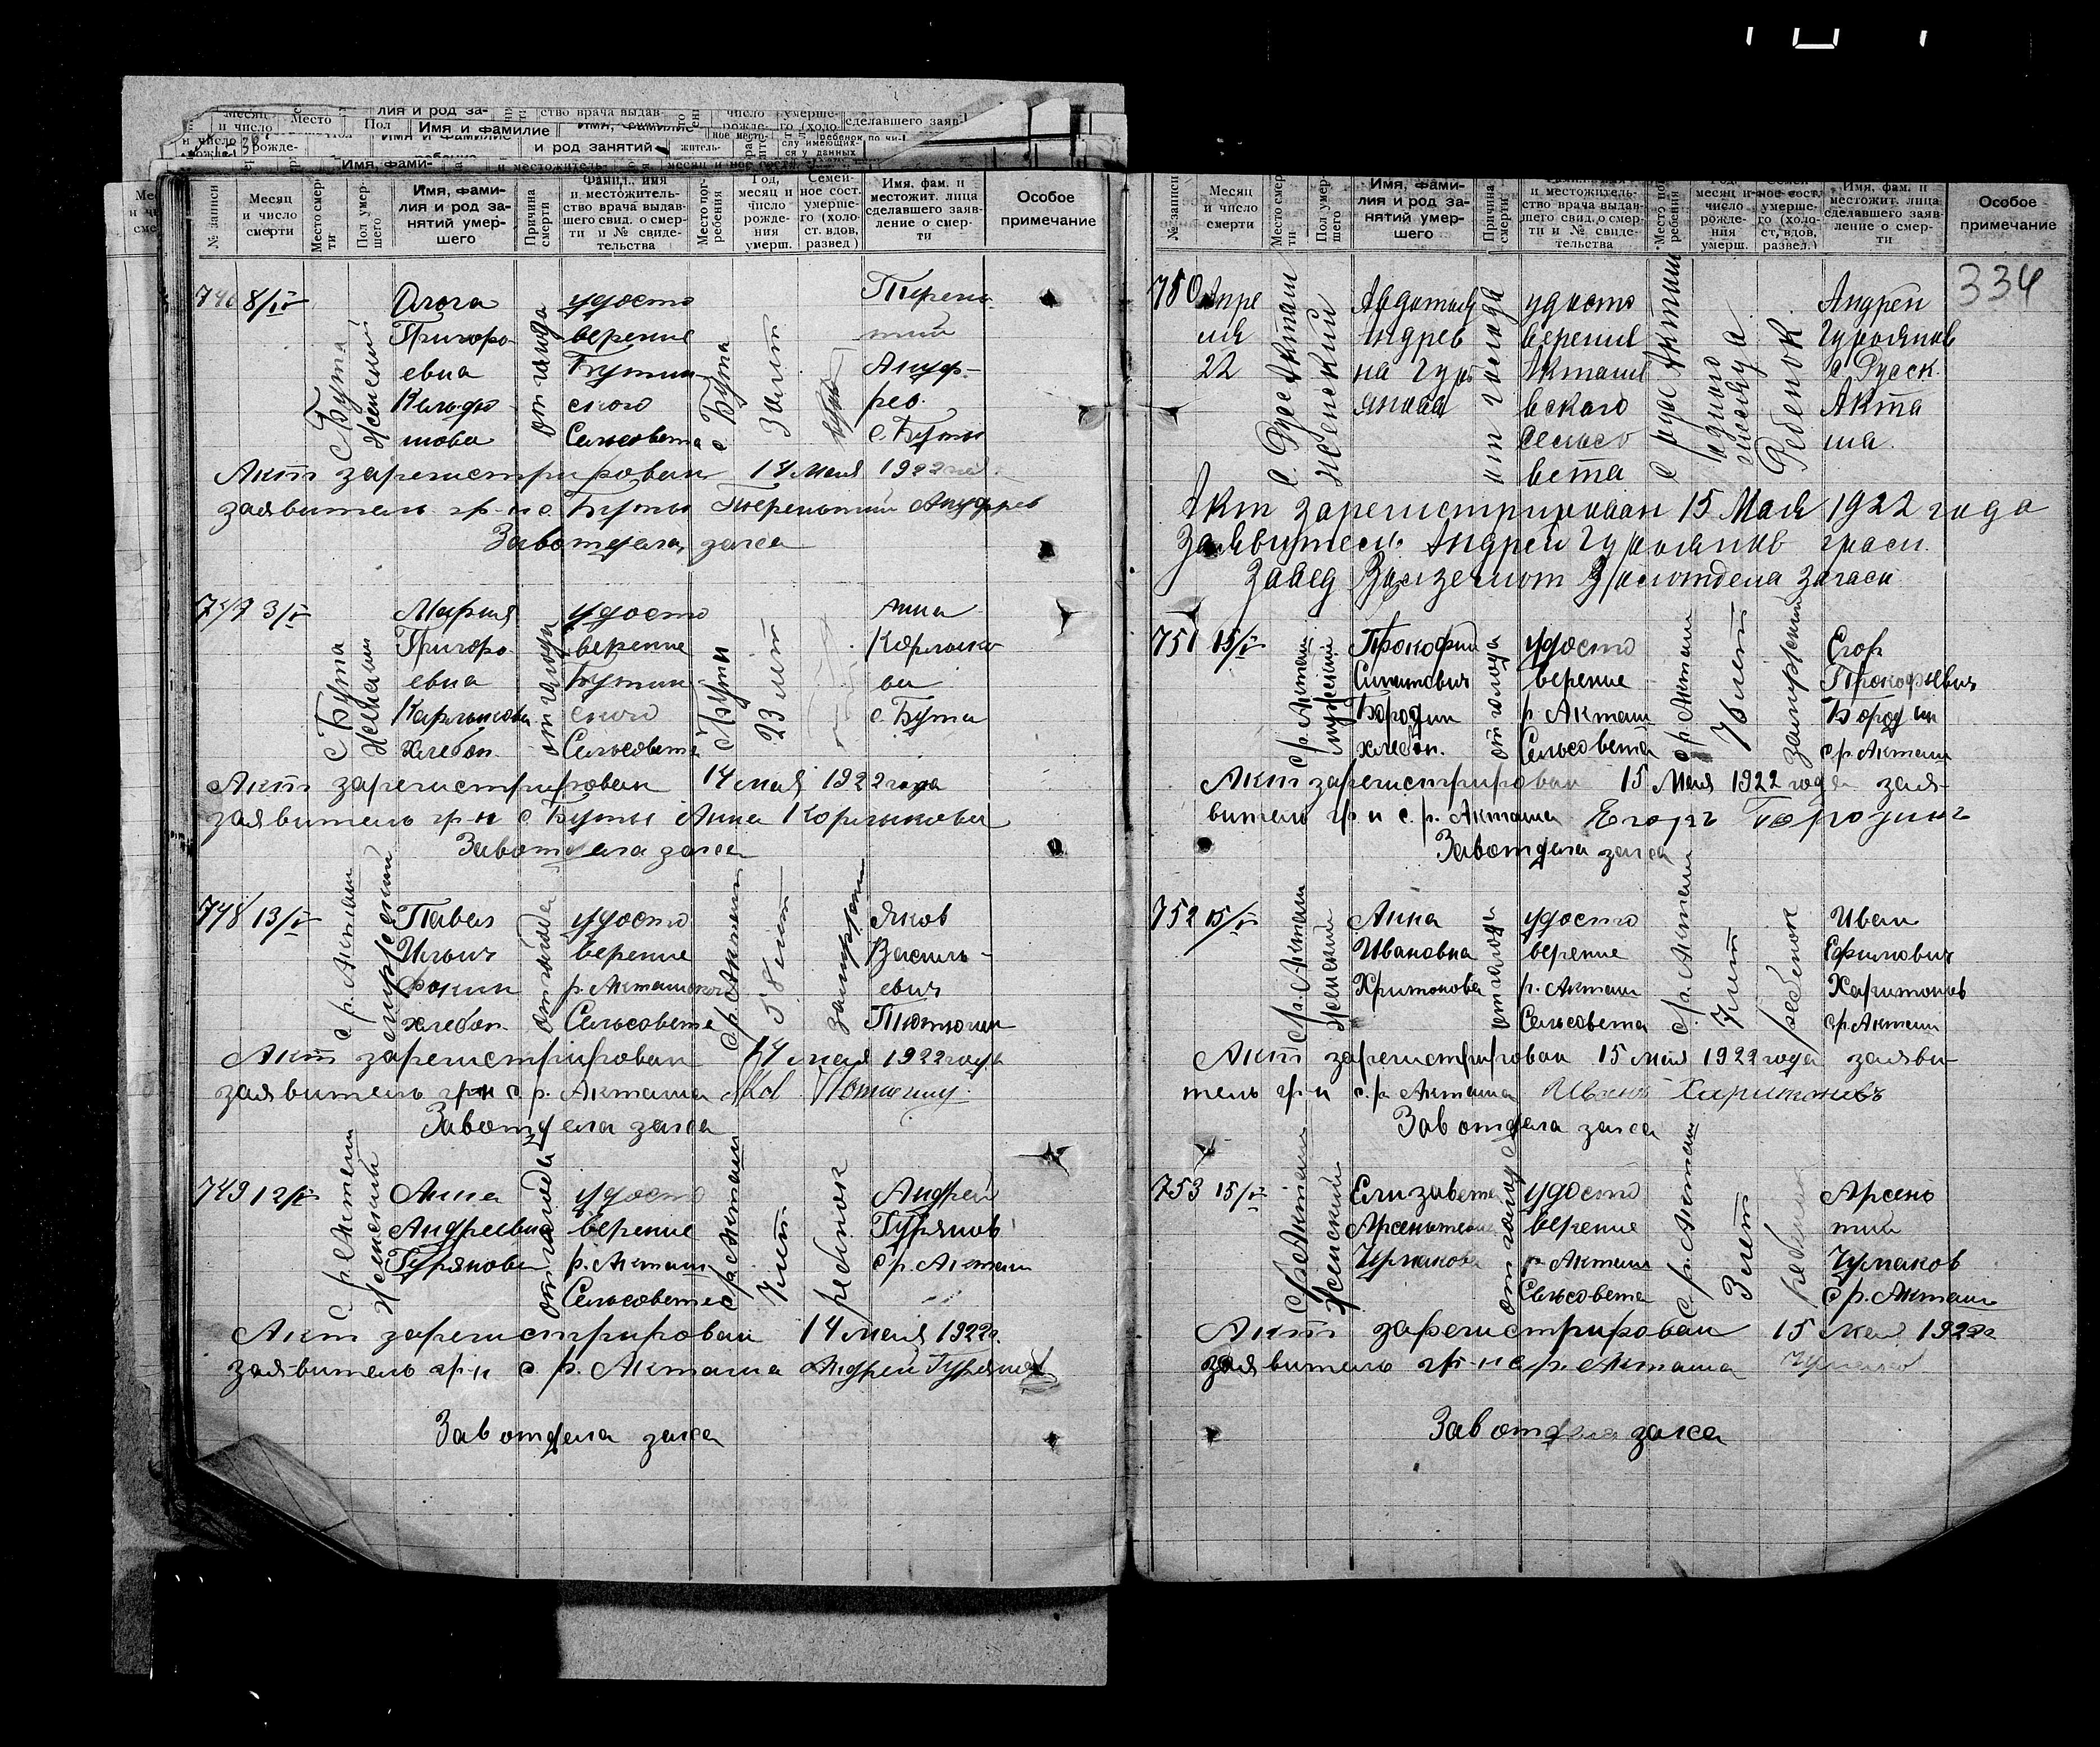 № записи
Месяц и число смерти
Место смерти
Пол умершего
Имя, фамилия и род занятий умершего
Причина смерти
Фамил., имя и местожительство врача выдавшего свид. о смерти и № свидетельства
Место погребения
Год, месяц и число рождения умерш.
Семейное сост. умершего (холост. вдов, развед)
Имя, фам. и местожит. лица сделавшего заявление о смерти
Особое примечание
746 8/IV
с Бута
Женский
Григоро
евна
от голода
удосто
верение
Бутин
ского
Сельсовета
с Бута
3 лет
Терень
тий
Ануф-
рео.
с. Буты
Акт зарегистрирован 14 мая 1922 год
заявитель гр-н с. Буты Терентий Ануфрев
Завотдела загса
747 3/V
с Бута
Женский
Мария
Григоро
евна
Карлыкова
хлебоп.
от голода
удосто
верение
Бутин
ского
Сельсовета
с Бути
23 лет
Анна
Карлыко
ва
с. Бута
Акт зарегистрирован 14 мая 1922 года
заявитель гр-н с Буты Анна Корлыкова
Завотдела загса
748 13/V
с р. Акташ
мужский
Павел
Ильич
Фокин
хлебоп.
от голода
удосто
верение
р. Акташского
Сельсовета
с р. Акташ
58 лет
Яков
Василь-
евич
Тютюгин
Акт зарегистрирован 14 мая 1922 года
заявитель гр-н с р. Акташа
Завотдела загса
749 12/V
с р. Акташ
Женский
Анна
Андреевна
Гурянова
от голода
удосто
верение
р. Акташ
Сельсовета
с р. Акташ
7 лет
ребенок
Андрей
Гурянов
с р. Акташ
Акт зарегистрирован 14 мая 1922г.
заявитель гр-н с. р. Акташа Андрей Гурянов
Завотдела загса
334
№ записи
Месяц и число смерти
Место смерти
Пол умершего
Имя, фамилия и род занятий умершего
Причина смерти
и местожительство врача выдавшего свид. о смерти и № свидетельства
Место погребения
месяц и число рождения умерш.
умершего (холост, вдов, развед.)
Имя, фам. и местожит. лица сделавшего заявление о смерти
Особое примечание
750 Апре
ля
22
с. Русс Акташ
женский
Авдотья
Андрев
на Гурь
янова
от голода
удосто
верение
Акташе
вского
сельсо
вета
с русс Акташ
одного
месяца
Ребенок
Андрей
Гурьянов
с. Русск.
Акта
ша.
Акт зарегистрирован 15 Мая 1922 года
Заявитель Андрей Гурьянов
751 15/V
с р. Акташ
мужский
Прокофий
Бородин
хлебоп.
от голода
удосто
верение
р. Акташ
Сельсовета
с р. Акташ
76 лет
Егор
Прокофьевич
Бородин
с р. Акташ
Акт зарегистрирован 15 Мая 1922 года заяв-
витель гр-н с. р. Акташа Егоръ Бородинъ
Завотдела загса
752 15/V
с р. Акташ
Женский
Анна
Ивановна
Хритонова
от голода
удосто
верение
р. Акташ
Сельсовета
с р. Акташ
7 лет
ребенок
Иван
Ефимович
Харитонов
с р. Акташ
Акт зарегистрирован 15 мая 1922 года заяви-
тель гр-н с. р. Акташа Иванъ Харитоновъ
Завотдела загса
753 15/V
с р. Акташ
Женский
Елизавета
Арсентьевна
Чумакова
от голода
удосто
верение
р. Акташ
Сельсовета
с. р. Акташ
3 лет
ребенок
Арсень
тий
Чумаков
с р. Акташ
Акт зарегистрирован 15 мая 1922г
заявитель гр-н с р. Акташа Чумаков
Завотдела загса